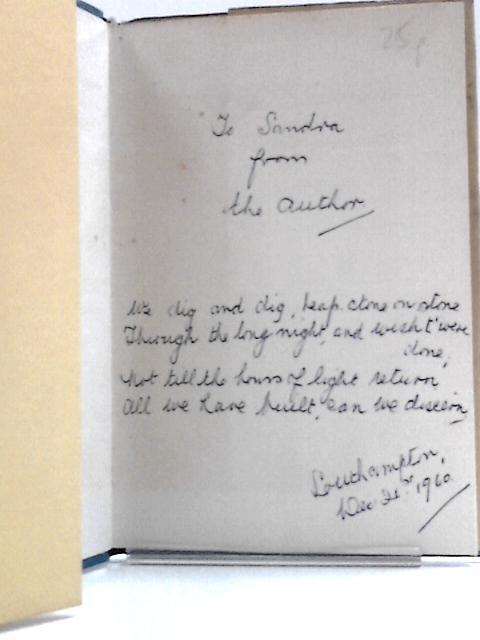 25p
To Sandra
from
the Author
We dig and dig, heap stone on stone
Through the long night, and wish t'were
done;
Not till the hours of light return
All we have built, can we discern
Southampton,
Dec 21st 1960